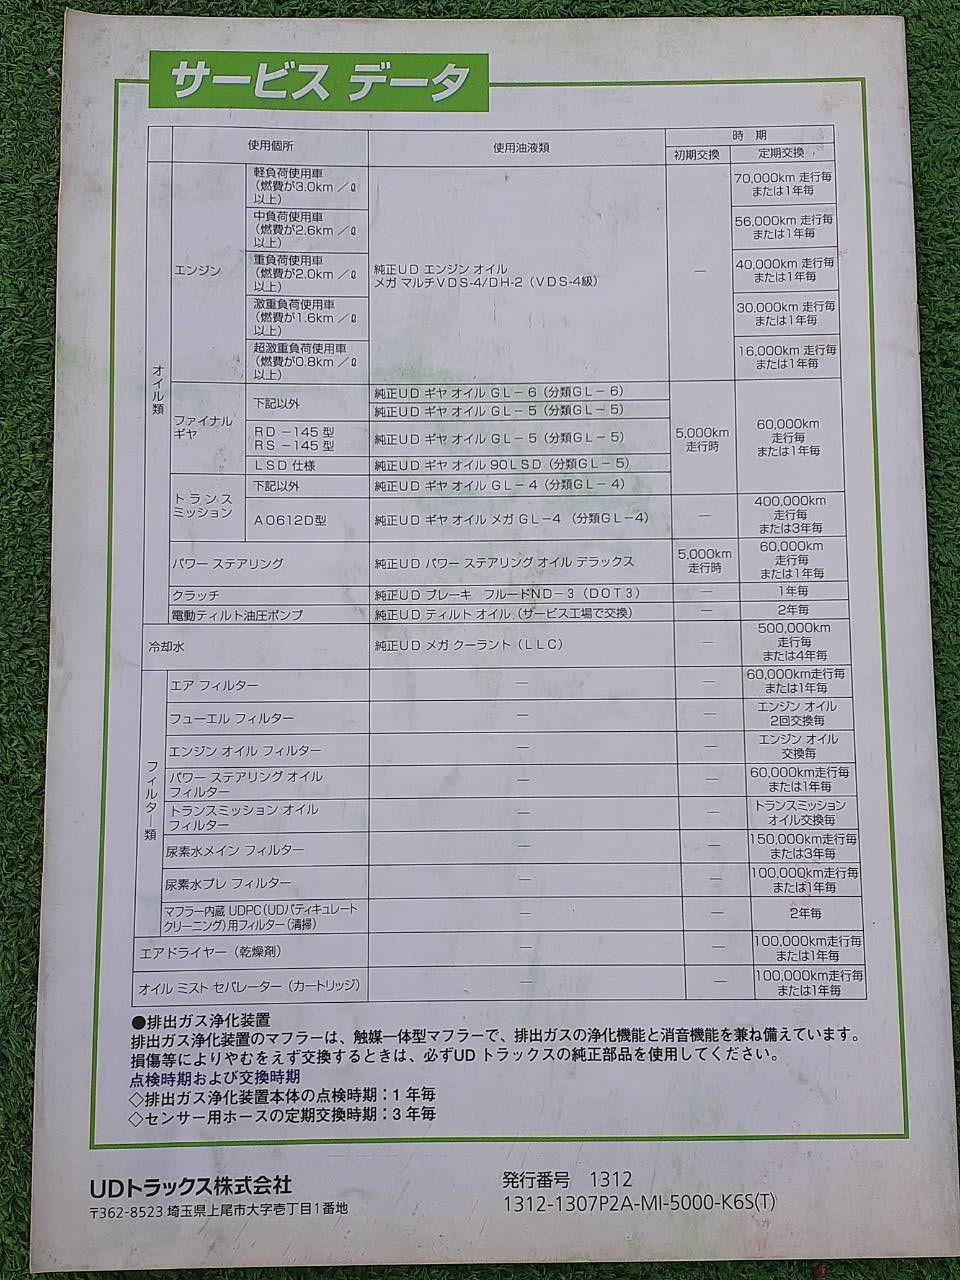 サービス データ
使用個所
使用油液類
時 期
初期交換
定期交換
オイル類
エンジン
軽負荷使用車
(燃費が3.0km ／ℓ
以上)
70,000km 走行毎
または1年毎
中負荷使用車
(燃費が2.6km ／ℓ
以上)
56,000km 走行毎
または1年毎
重負荷使用車
(燃費が2.0km ／ℓ
以上)
純正UD エンジン オイル
メガ マルチVDS-4/DH-2（VDS-4級）
—
40,000km 走行毎
または1年毎
激重負荷使用車
(燃費が1.6km ／ℓ
以上)
30,000km 走行毎
または1年毎
超激重負荷使用車
(燃費が0.8km ／ℓ
以上)
16,000km 走行毎
または1年毎
ファイナル
ギヤ
下記以外
純正UD ギヤ オイル GL－6（分類GL－6）
純正UD ギヤ オイル GL－5（分類GL－5）
RD －145 型
RS －145 型
純正UD ギヤ オイル GL－5（分類GL－5）
5,000km
走行時
60,000km
走行毎
または1年毎
LSD 仕様
純正UD ギヤ オイル 90LSD（分類GL－5）
トランス
ミッション
下記以外
純正UD ギヤ オイル GL－4（分類GL－4）
AO612D型
純正UD ギヤ オイル メガ GL－4 （分類GL－4）
—
400,000km
走行毎
または3年毎
パワー ステアリング
純正UD パワー ステアリング オイル デラックス
5,000km
走行時
60,000km
走行毎
または1年毎
クラッチ
純正UD ブレーキ フルードND－3（DOT3）
—
1年毎
電動ティルト油圧ポンプ
純正UD ティルト オイル（サービス工場で交換）
—
2年毎
冷却水
純正UD メガ クーラント（LLC）
—
500,000km
走行毎
または4年毎
フィルター類
エア フィルター
—
—
60,000km走行毎
または1年毎
フューエル フィルター
—
—
エンジン オイル
2回交換毎
エンジン オイル フィルター
—
—
エンジン オイル
交換毎
パワー ステアリング オイル
フィルター
—
—
60,000km走行毎
または1年毎
トランスミッション オイル
フィルター
—
—
トランスミッション
オイル交換毎
尿素水メイン フィルター
—
—
150,000km走行毎
または3年毎
尿素水プレ フィルター
—
—
100,000km走行毎
または1年毎
マフラー内蔵 UDPC（UDパティキュレート
クリーニング）用フィルター（清掃）
—
—
2年毎
エアドライヤー（乾燥剤）
—
—
100,000km走行毎
または1年毎
オイル ミスト セパレーター（カートリッジ）
—
—
100,000km走行毎
または1年毎
●排出ガス浄化装置
排出ガス浄化装置のマフラーは、触媒一体型マフラーで、排出ガスの浄化機能と消音機能を兼ね備えています。
損傷等によりやむをえず交換するときは、必ずUD トラックスの純正部品を使用してください。
点検時期および交換時期
◇排出ガス浄化装置本体の点検時期：1 年毎
◇センサー用ホースの定期交換時期：3 年毎
UDトラックス株式会社
〒362-8523 埼玉県上尾市大字壱丁目1番地
発行番号 1312
1312-1307P2A-MI-5000-K6S(T)